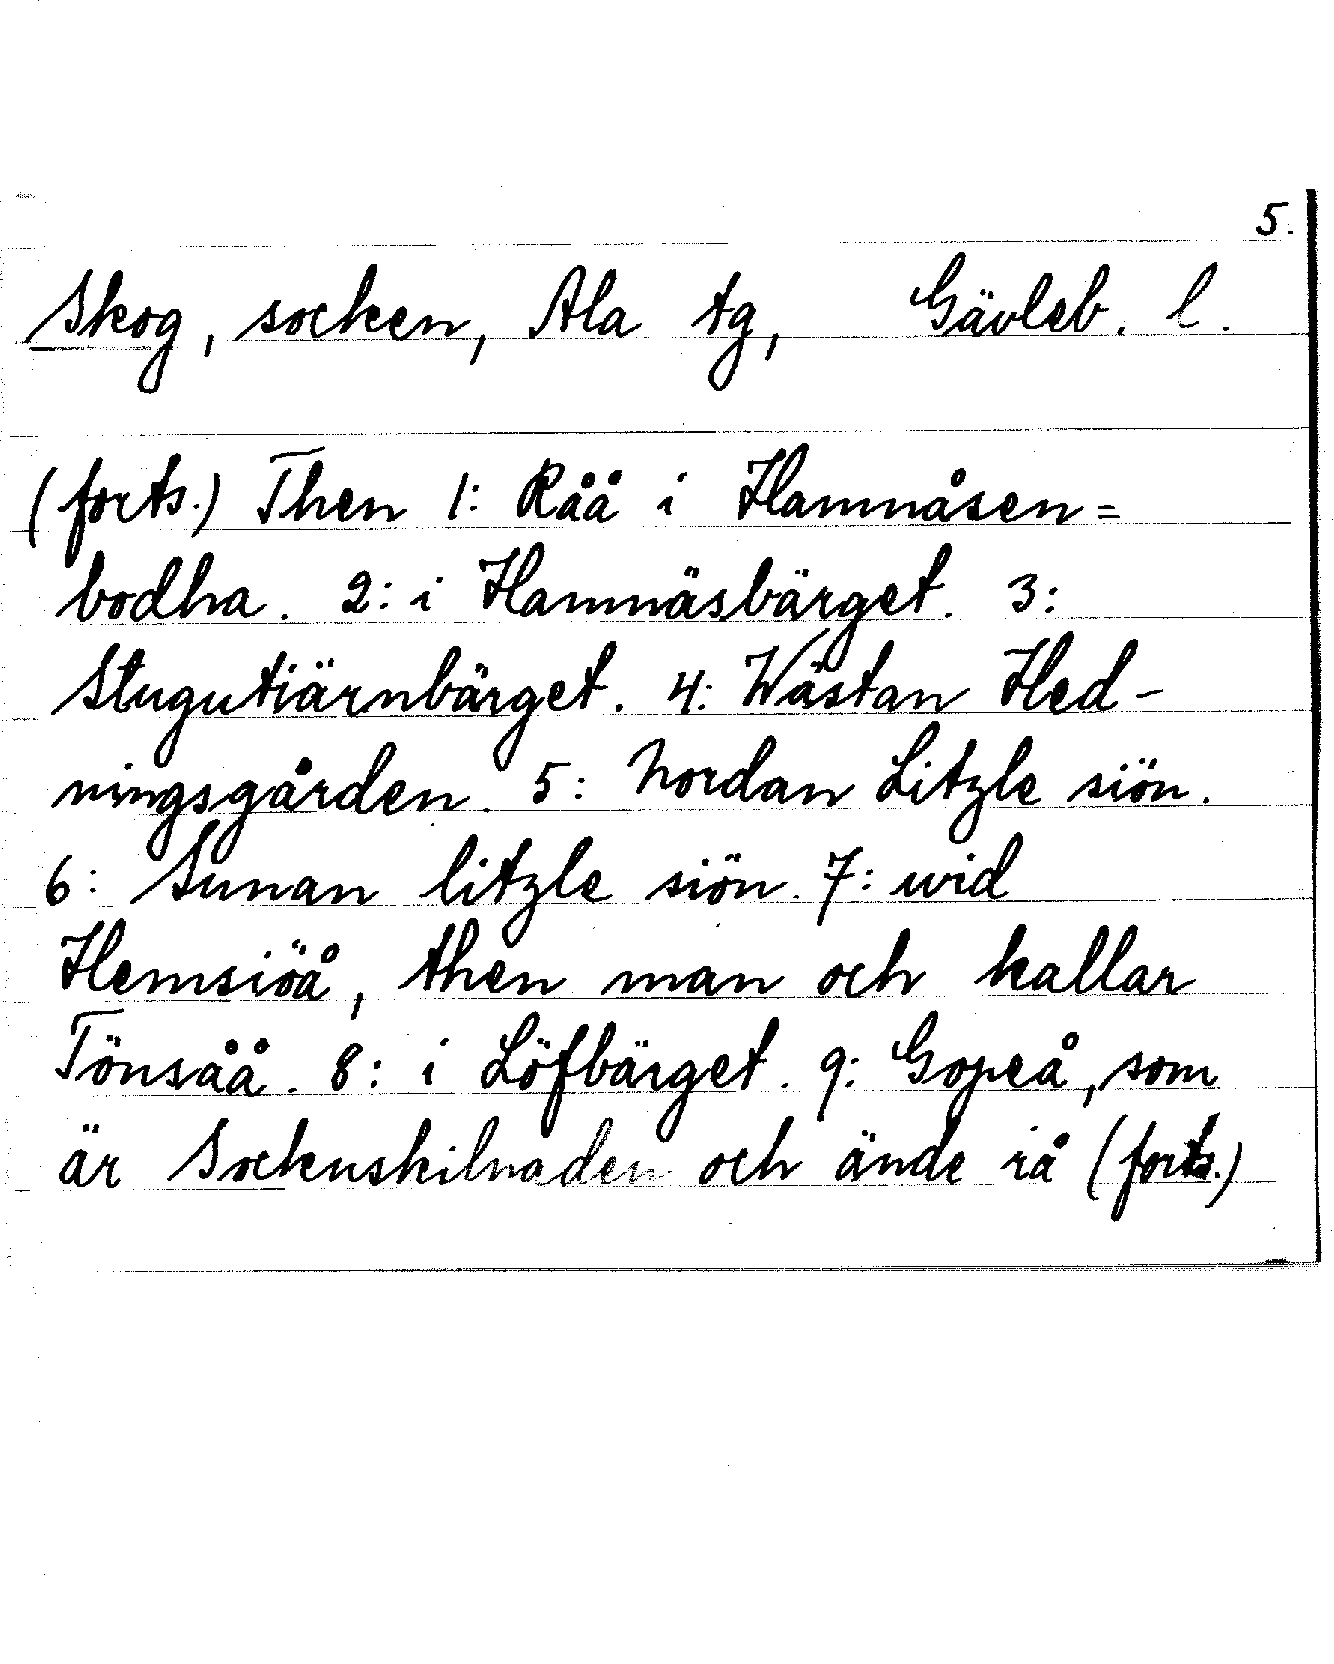 5.
Skog, socken, Ala tg, Gävleb. l.
(forts.) Then 1: Råå i Hamnåsen=
bodha. 2: i Hamnäsbärget. 3:
Stugutiärnbärget. 4: Wästan Hed-
ningsgården. 5: Nordan Litzle siön.
6: Sunan litzle siön. 7: wid
Hemsiöå, then man och kallar
Tönsåå. 8: i Löfbärget. 9: Gopeå, som
är Sockuskilnaden och ände rå (forts.)